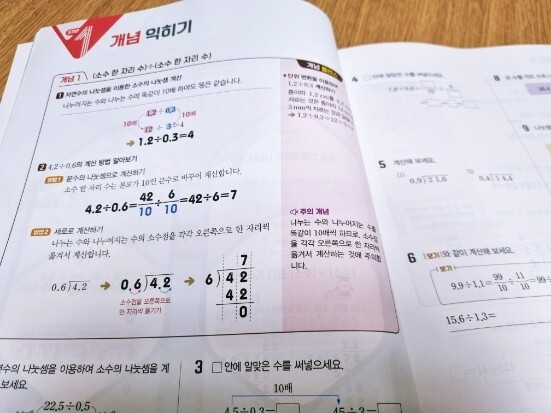 STEP 1 개념 익히기
개념 1 (소수 한 자리 수)÷(소수 한 자리 수)
1 자연수의 나눗셈을 이용한 소수의 나눗셈 계산
나누어지는 수와 나누는 수에 똑같이 10배 하여도 몫은 같습니다.
1.2÷0.3
10배 10배
12 ÷ 3=4
➔ 1.2÷0.3=4
2 4.2÷0.6의 계산 방법 알아보기
방법1 분수의 나눗셈으로 계산하기
소수 한 자리 수는 분모가 10인 분수로 바꾸어 계산합니다.
4.2÷0.6=42/10÷6/10=42÷6=7
방법2 세로로 계산하기
나누는 수와 나누어지는 수의 소수점을 각각 오른쪽으로 한 자리씩
옮겨서 계산합니다.
0.6)4.2 ➔ 0.6)4.2 ➔ 6)42
7
42
0
소수점을 오른쪽으로
한 자리씩 옮기기
개념 플러스
• 단위 변환을 이용하여
1.2÷0.3 계산하기
주의 개념
나누는 수와 나누어지는 수를
똑같이 10배씩 하므로, 소수점
을 각각 오른쪽으로 한 자리씩
옮겨서 계산하는 것에 주의합
니다.
나눗셈을 이용하여 소수의 나눗셈을 계
보세요.
22.5÷0.5
3 □ 안에 알맞은 수를 써넣으세요.
10배
4.5÷0.3=□ 45÷3=□
4 □ 안에 알맞은 수를 써넣으세요.
5 계산해 보세요.
(1) 0.9)21.6 (2) 0.4)14.4
6 보기와 같이 계산해 보세요.
보기
9.9÷1.1=99/10÷11/10=99÷
15.6÷1.3=
8
9